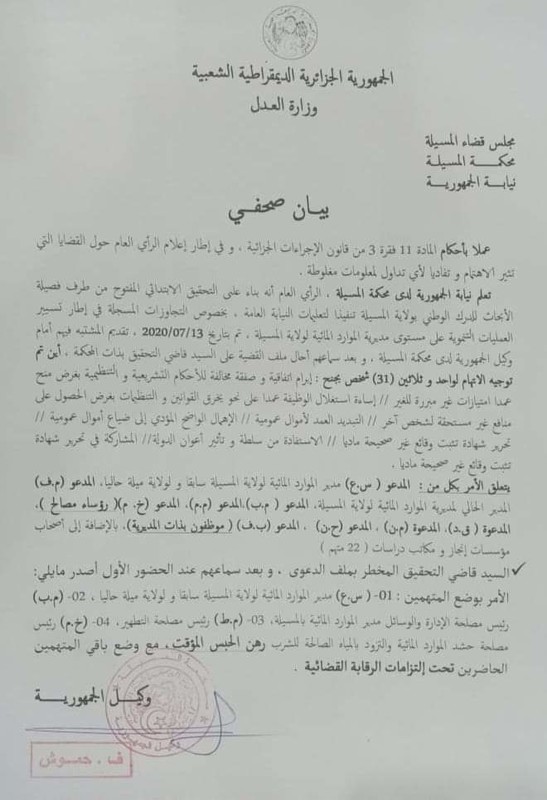 الجمهورية الجزائرية الديمقراطية الشعبية
وزارة العدل
مجلس قضاء المسيلة
محكمة المسيلة
نيابة الجمهورية
بيان صحفي
عملا بأحكام المادة 11 فقرة 3 من قانون الإجراءات الجزائية ، و في إطار إعلام الرأي العام حول القضايا التي
تثير الاهتمام و تفاديا لأي تداول لمعلومات مغلوطة .
تعلم نيابة الجمهورية لدى محكمة المسيلة ، الرأي العام أنه بناء على التحقيق الابتدائي المفتوح من طرف فصيلة
الأبحاث للدرك الوطني بولاية المسيلة تنفيذا لتعليمات النيابة العامة ، بخصوص التجاوزات المسجلة في إطار تسيير
العمليات التنموية على مستوى مديرية الموارد المائية لولاية المسيلة ، تم بتاريخ 2020/07/13 ، تقديم المشتبه فيهم أمام
وكيل الجمهورية لدى محكمة المسيلة ، و بعد سماعهم أحال ملف القضية على السيد قاضي التحقيق بذات المحكمة ، أين تم
توجيه الاتهام لواحد و ثلاثين (31) شخص بجنح : إبرام اتفاقية و صفقة مخالفة للأحكام التشريعية و التنظيمية بغرض منح
عمدا امتيازات غير مبررة للغير // إساءة استغلال الوظيفة عمدا على نحو يخرق القوانين و التنظيمات بغرض الحصول على
منافع غير مستحقة لشخص آخر // التبديد العمد لأموال عمومية // الإهمال الواضح المؤدي إلى ضياع أموال عمومية //
تحرير شهادة تثبت وقائع غير صحيحة ماديا // الاستفادة من سلطة و تأثير أعوان الدولة// المشاركة في تحرير شهادة
تثبت وقائع غير صحيحة ماديا .
يتعلق الأمر بكل من : المدعو ( س.ع) مدير الموارد المائية لولاية المسيلة سابقا و لولاية ميلة حاليا، المدعو (م.ف)
المدير الحالي لمديرية الموارد المائية لولاية المسيلة، المدعو ( م.ب)،المدعو (م.م)، المدعو (خ. م)( رؤساء مصالح )،
المدعوة ( ق.د)، المدعوة (م.ن) ، المدعو (ح.ن) ، المدعو (ب.ف) ( موظفون بذات المديرية)، بالإضافة إلى أصحاب
مؤسسات إنجاز و مكاتب دراسات ( 22 متهم )
✓السيد قاضي التحقيق المخطر بملف الدعوى ، و بعد سماعهم عند الحضور الأول أصدر مايلي:
الأمر بوضع المتهمين : 01- ( س.ع) مدير الموارد المائية لولاية المسيلة سابقا و لولاية ميلة حاليا ، 02- (م.ب)
رئيس مصلحة الإدارة والوسائل مدير الموارد المائية بالمسيلة، 03- (م.ط) رئيس مصلحة التطهير، 04- (خ.م) رئيس
مصلحة حشد الموارد المائية والتزود بالمياه الصالحة للشرب رهن الحبس المؤقت، مع وضع باقي المتهمين
الحاضرين تحت إلتزامات الرقابة القضائية .
وكيل الجمهورية
وكيل الجمهورية